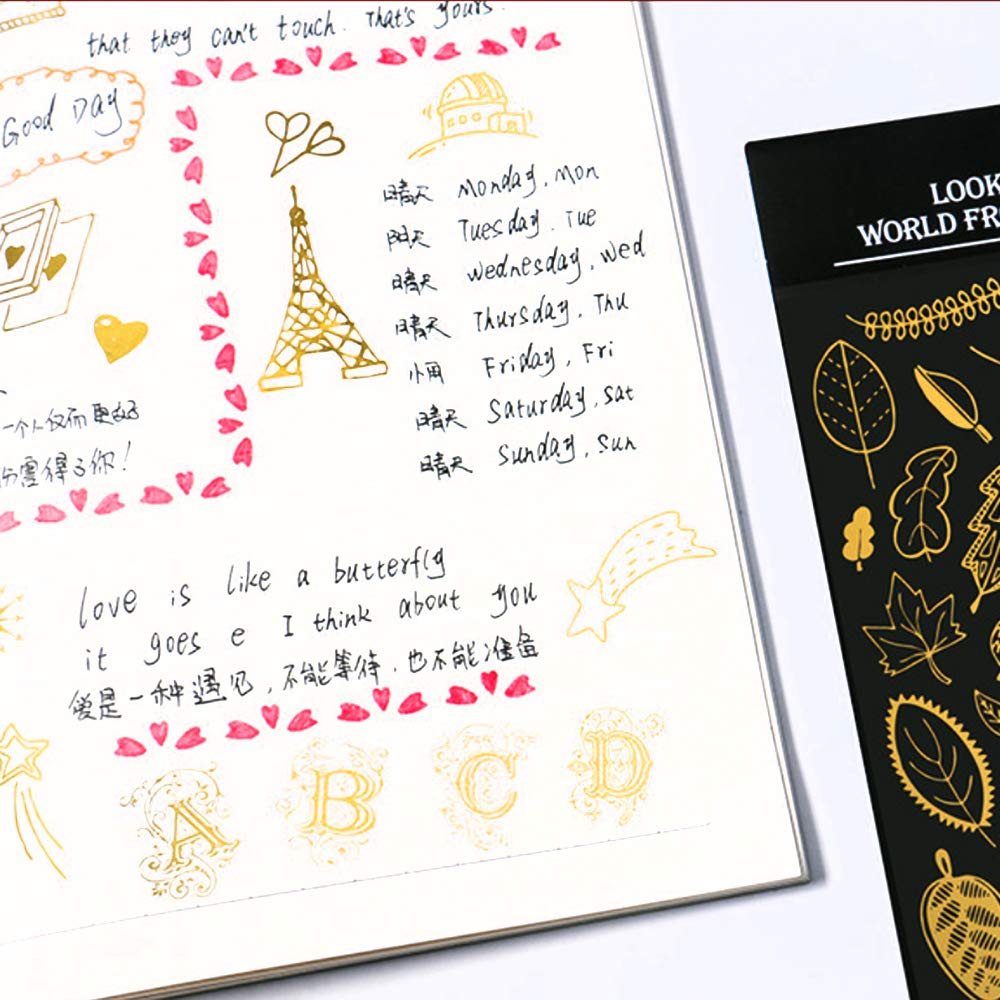 that they can't touch. That's yours.
Good Day
晴天 Monday, Mon
阴天 Tuesday. Tue
晴天 Wednesday, Wed
晴天 Thursday, Thu
小雨 Friday, Fri
晴天 Saturday, Sat
晴天 Sunday, Sun
一个人仅而更
伤害得了你!
love is like a butterfly
it goes e I think about you
爱是一种遇见,不能等待,也不能准备
A B C D
LOOK
WORLD FR